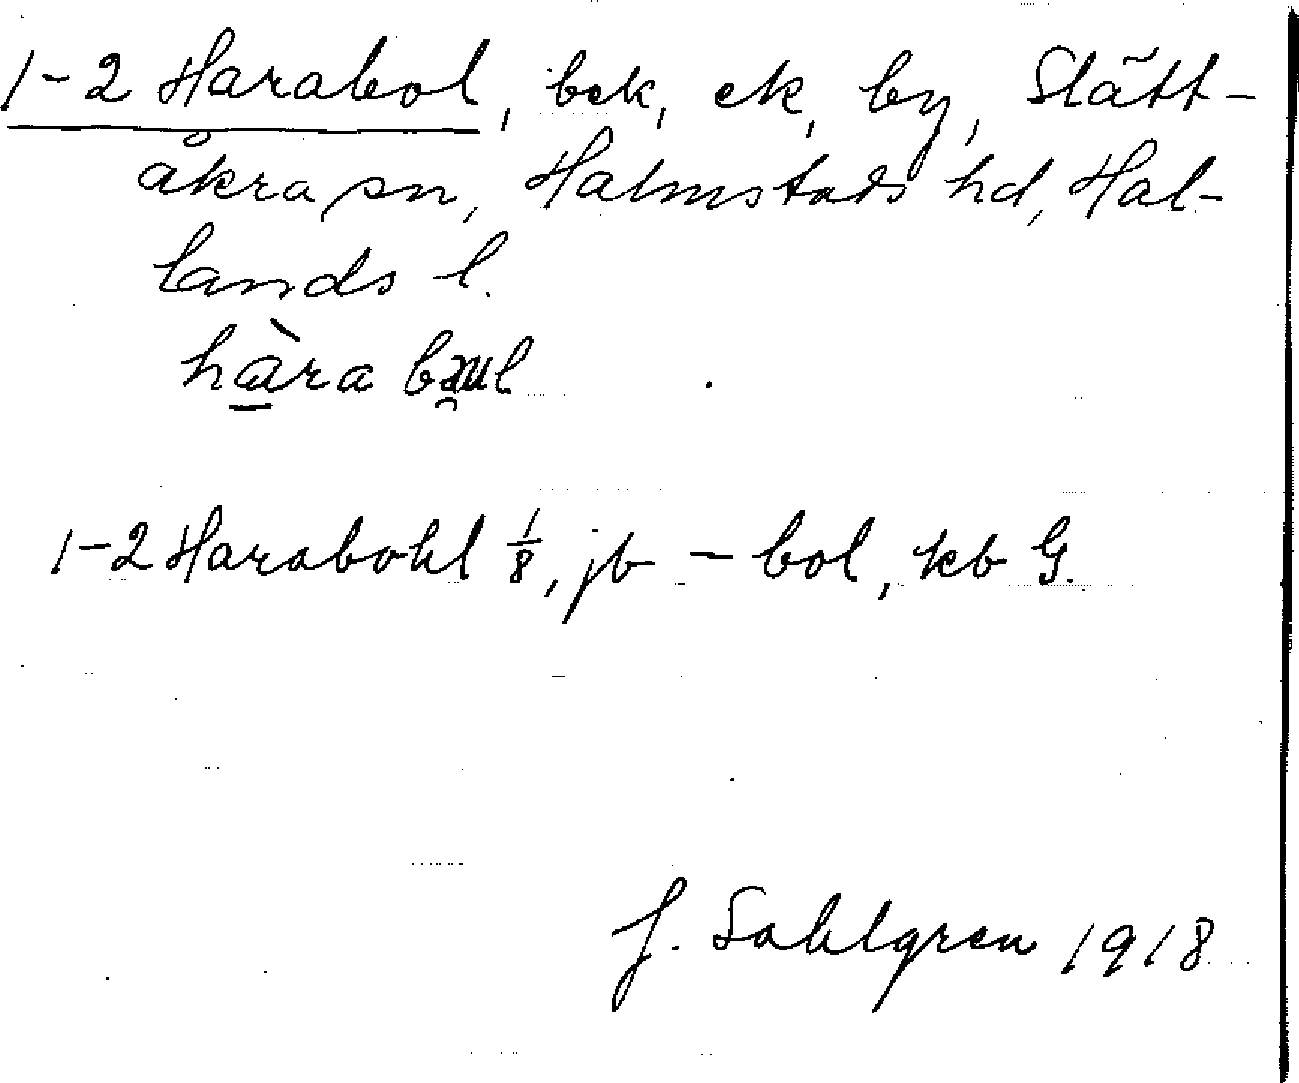 1-2 Harabol, bek, ek, by, Slätt-
åkra sn, Halmstads hd, Hal-
lands l.
hàra
1-2 Harabohl 1/8, jb - bol, kb G.
J. Sahlgren 1918